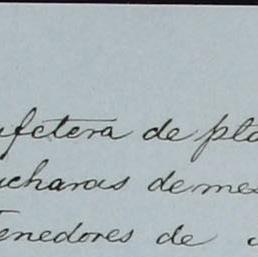 afetera de pla
ucharas de mes
tenedores de